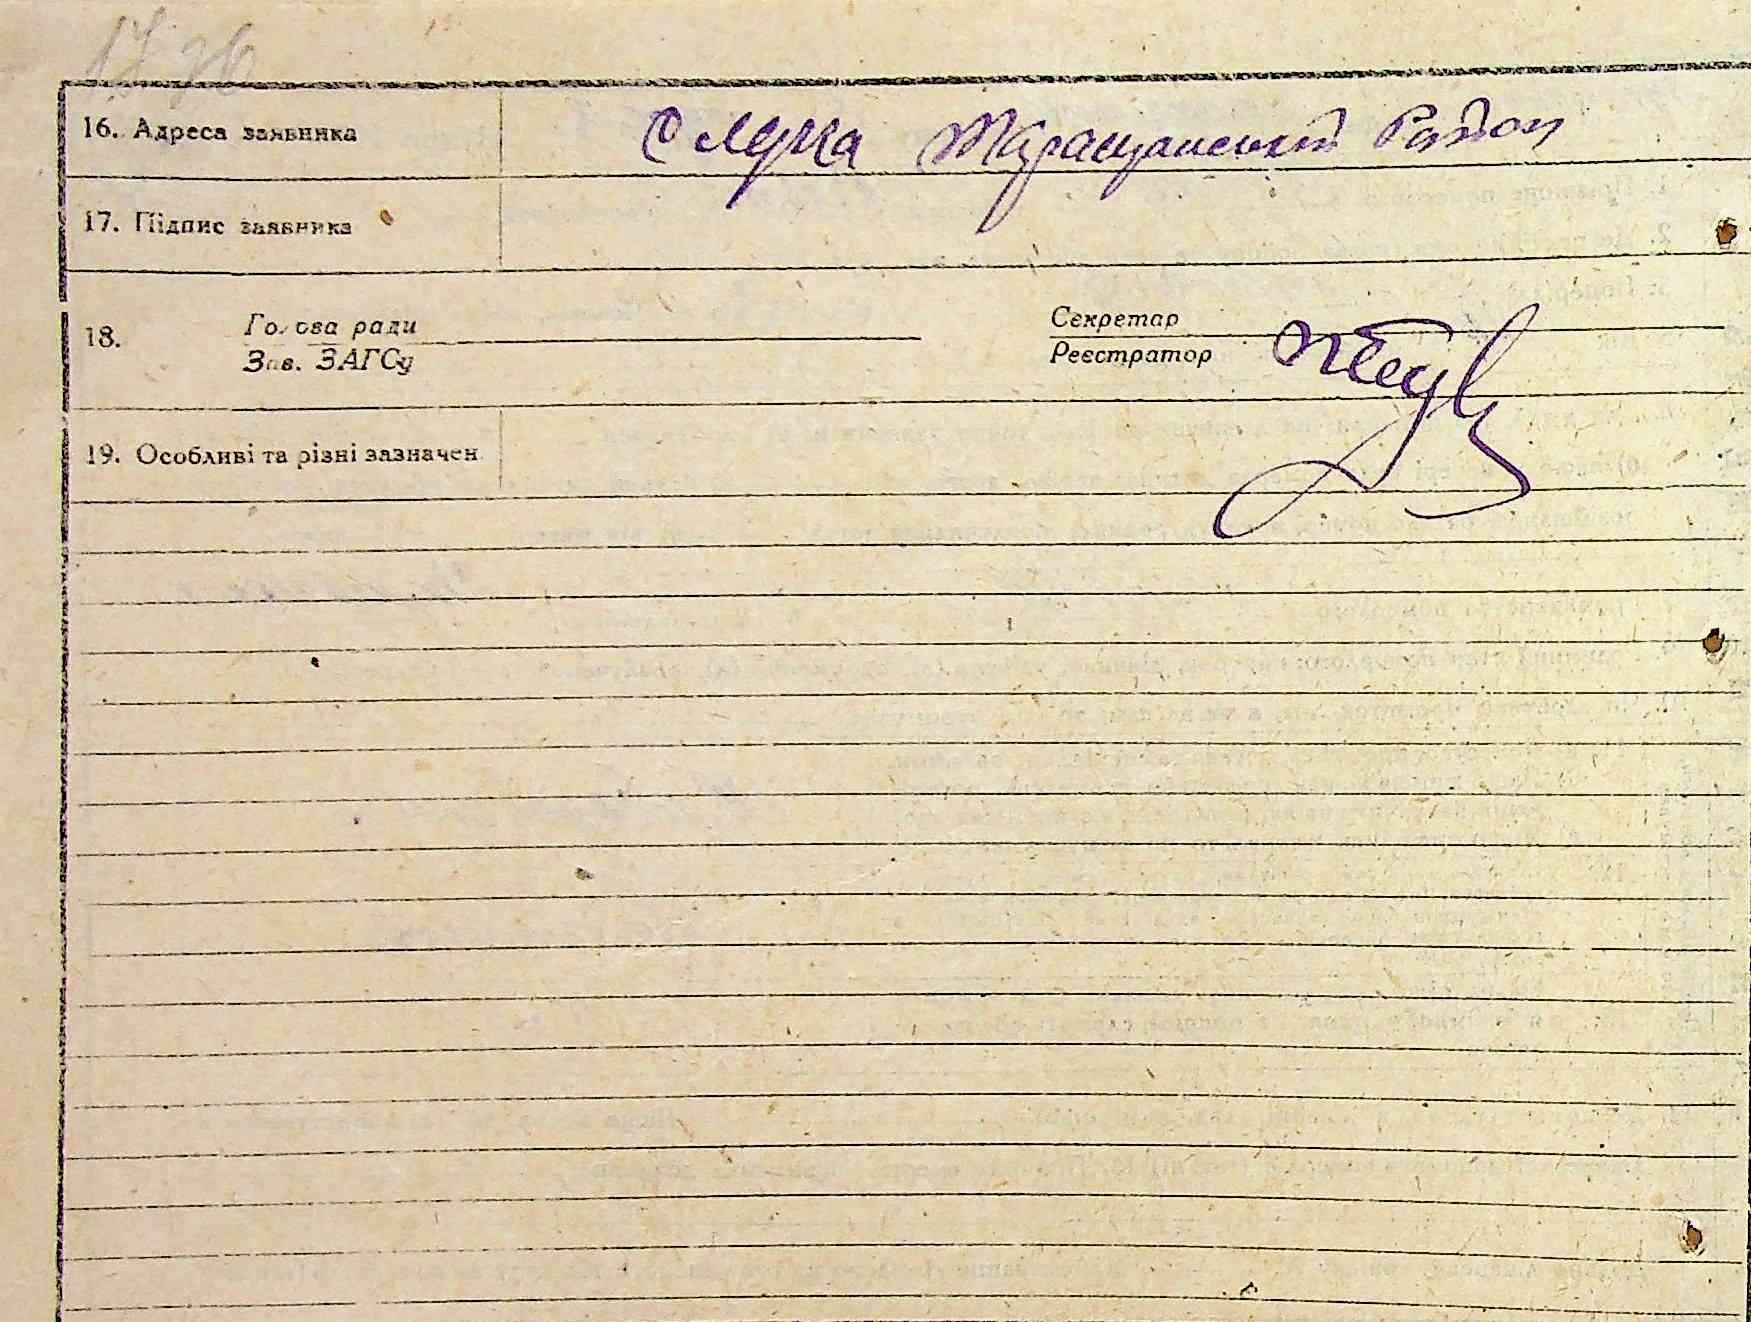 16. Адреса заявника
с Лука Таращанський Район
17. Підпис заявника
18. Голова ради
Зав. ЗАГСу
Секретар
Реєстратор
19. Особливі та різні зазначен